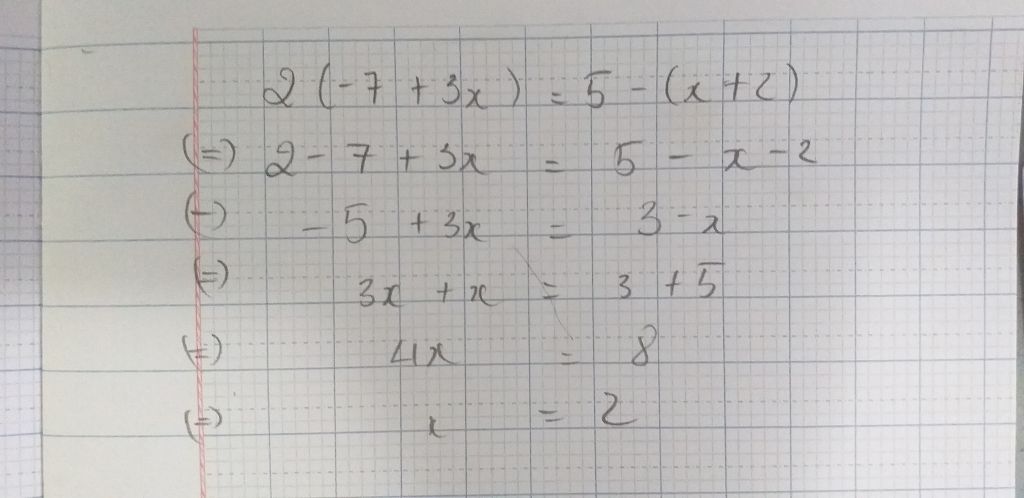 2 (-7 + 3x) = 5 - (x + 2)
(=) 2 - 7 + 3x = 5 - x - 2
(=) - 5 + 3x = 3 - x
(=) 3x + x = 3 + 5
(=) 4x = 8
(=) x = 2